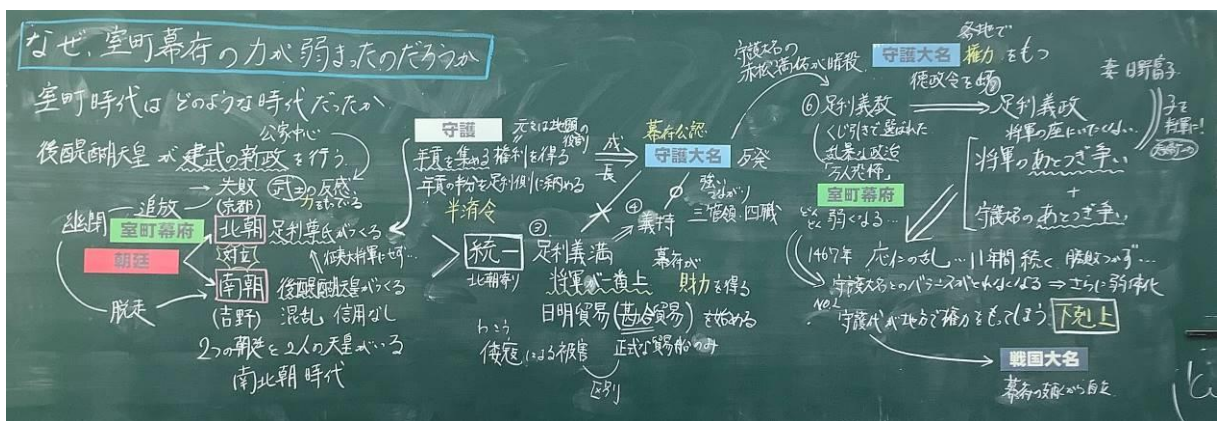 なぜ、室町幕府の力が弱まったのだろうか
室町時代はどのような時代だったか
公家中心
後醍醐天皇が建武の新政を行う
→失敗
武士の反感
(京都)
追放
幽閉
室町幕府
朝廷
北朝
足利尊氏がつくる
対立
征夷大将軍にせず…
南朝
後醍醐天皇がつくる
脱走
(吉野)
混乱 信用なし
2つの朝廷と2人の天皇がいる
南北朝時代
守護
元々は地頭の役割
年貢を集める権利を得る
年貢の半分を足利側に納める
半済令
成長
幕府公認
守護大名
反発
強いつながり
三管領 四職
統一
北朝寄り
③
足利義満
④
義持
将軍が一番上
幕府が
財力を得る
日明貿易(勘合貿易)を始める
わこう
倭寇による被害
正式な貿易船のみ
区別
守護大名の
赤松満祐が暗殺
各地で
守護大名
権力をもつ
徳政令を
⑥足利義教
くじ引きで選ばれた
乱暴な政治
「万人恐怖」
室町幕府
どんどん弱くなる…
足利義政
妻 日野富子
子を将軍に!
将軍の座にいたくない…
将軍のあとつぎ争い
+
守護大名のあとつぎ争い
1467年 応仁の乱…11年間続く 勝敗つかず…
守護大名とのバランスがとれなくなる⇒さらに弱体化
No.2
守護代が地方で権力をもってしまう
下剋上
戦国大名
幕府の支配から自立